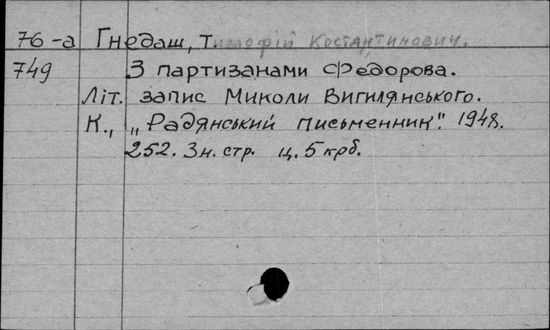 76-а Гнедаш, Т.имофій Костянтинович.
749 З партизанами Федорова.
Літ. запис Миколи Вигилянського.
К., „Радянський письменник". 1948.
252. 3н. стр. ц. 5 крб.